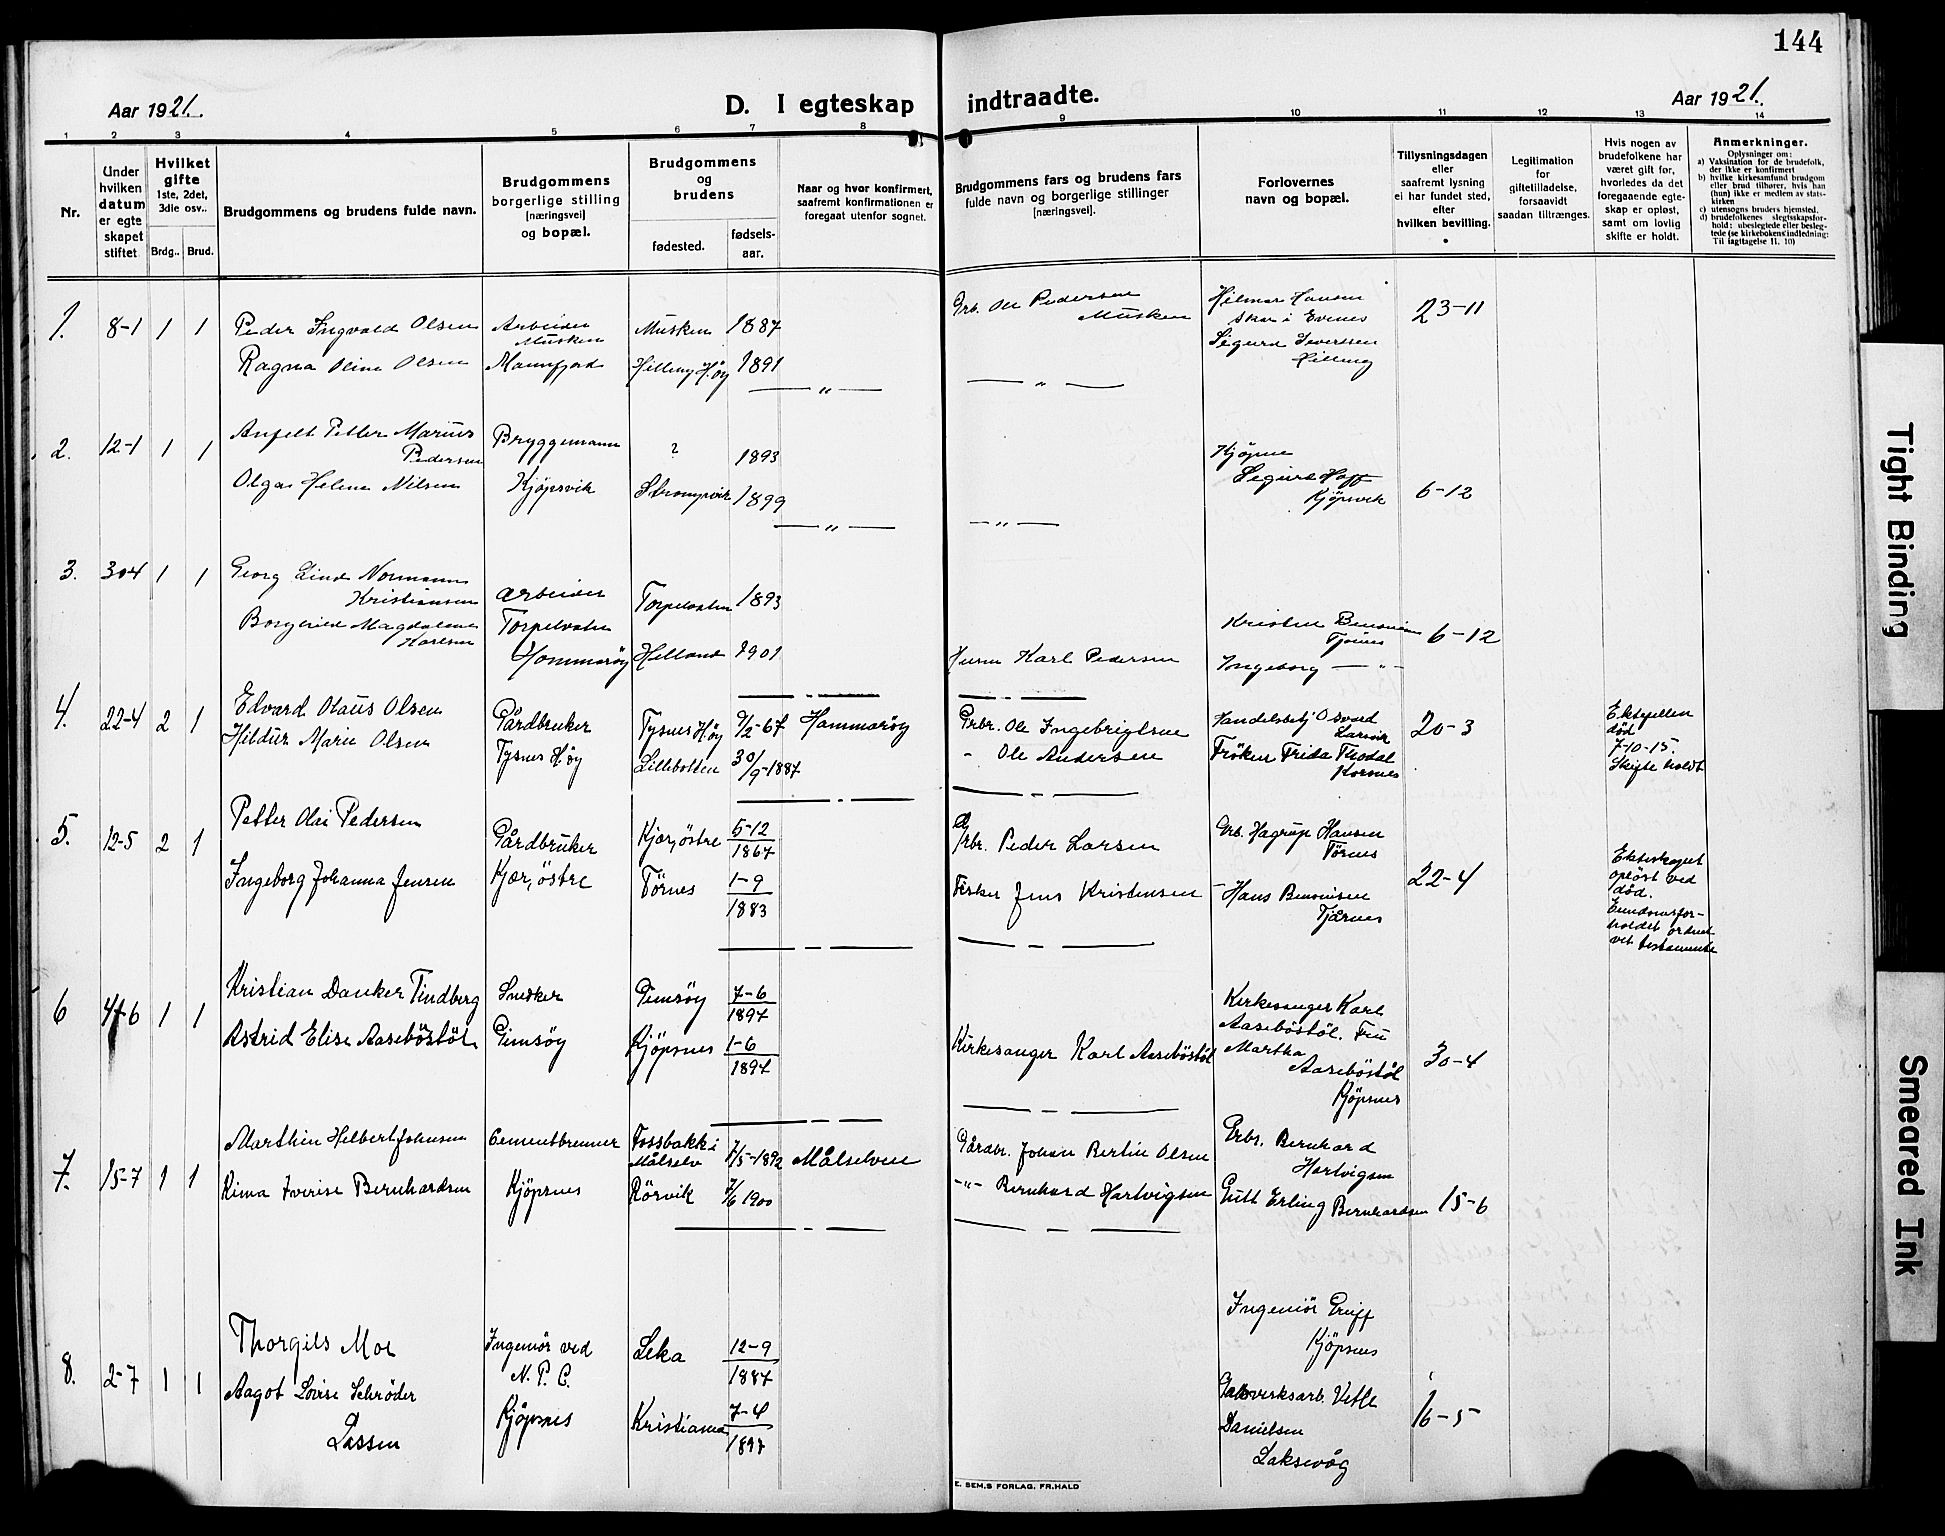 144
Aar 1921.
D. I egteskap indtraadte.
Aar 1921.
1 2 3 4 5 6 7 8 9 10 11 12 13 14
Nr.
Under hvilken datum er egteskapet stiftet
Hvilket gifte 1ste, 2det, 3die osv..
Brdg.. Brud.
Brudgommens og brudens fulde navn.
Brudgommens borgerlige stilling [næringsvei] og bopæl.
Brudgommens og brudens
fødested.
fødselsaar.
Naar og hvor konfirmert, saafremt konfirmationen er foregaat utenfor sognet.
Brudgommens fars og brudens fars fulde navn og borgerlige stillinger [næringsvei].
Forlovernes navn og bopæl.
Tillysningsdagen eller saafremt lysning ei har fundet sted, efter hvilken bevilling.
Legitimation for giftetilladelse, forsaavidt saadan tiltrænges.
Hvis nogen av brudefolkene har været gift før, hvorledes da det foregaaende egteskap er opløst, samt om lovlig skifte er holdt.
Anmerkninger.
Oplysninger om:
a) Vaksination for de brudefolk, der ikke er konfirmert
b) hvilke kirkesamfund brudgom eller brud tilhører, hvis han (hun) ikke er medlem av statskirken
c) utensogns bruders hjemsted.
d) brudefolkenes slegtsskapsforhold: ubeslegtede eller beslegtede (se kirkebokens indledning: Til iagttagelse II. 10)
1. 8-1 1 1 Peder Ingvald Olsen Arbeider Musken Musken 1887 Grb. Ole Pedersen Musken Hilmar Hansen Skar i Evenes 23-11
Ragna Oline Olsen Mannfjord Helling Høy 1891 Sigurd Severtsen Helling
— „ —
2. 12-1 1 1 Anfelt Petter Marius Pedersen Bryggemann ? 1893
Olga Helene Nilsen Kjöpsvik 1899 Sigurd Hoff Kjöpsvik 6-12
— „ —
3. 30-4 1 1 Georg Lind Normann Kristiansen Arbeider Torpelvaten 1893
Magdalene Karlsen Torpelvatn Hammaröy Helland 1901 Karl Pedersen Kristen 6-12
Ingeborg — „ —
4. 22-4 2 1 Edvard Olaus Olsen Gårdbruker Tysnes Høy 9/2-67 Hammaröy Grbr. Ole Ingebrigtsen Handelsbtj Osvald Larsvik 20-3 død 7-10-15. Skifte holdt
Hildur Marie Olsen Tysnes Høy Lillebotten 30/9-1887 - Ole Andersen Fröken Frida Thodal Korsnes
5. 12-5 2 1 Petter Olai Pedersen Gårdbruker Kjær, östre 5-12 1867 Grbr. Peder Larsen Grb. Hagrup Hansen Törnes 22-4 Ekteskapet oplöst ved død.
Ingeborg Johanna Jensen Kjær, östre Törnes 1-9 1883 Fisker Jens Kristensen - Hans Benonisen Tjårnes
6 4-6 1 1 Kristian Danker Tindberg Snedker Gimsöy 7-6 1897 Kirkesanger Karl Aaseböstöl. Fru
Astrid Elise Aaseböstöl Gimsöy Kjöpsnes 1-6 1897 Kirkesanger Karl Aaseböstöl Martha Aaseböstöl Kjöpsnes 30-4
7. 15-7 1 1 Marthin Helbert Johnsen Cementbrenner Fossbakk i Målselv 7/5-1892 Målselven Gårdbr. Johan Bertin Olsen Grbr. Bernhard Hartvigsen
Bernhardsen Kjöpsnes Rörvik 7/6 1900 -„- Bernhard Hartvigsen Gutt Erling Bernhardsen 15-6
8. 2-7 1 1 Thorgils Moe Ingeniör ved N. P. C. Leka 12-9 1887 Ingeniör Kjöpsnes
Aagot Lovise Schröder Lassen Kjöpsnes Kristiania 7-4 1897 Vetle Danielsen Laksevåg 16-5
E. SEM.S FORLAG. FR.HALD
Tight Binding
Smeared Ink